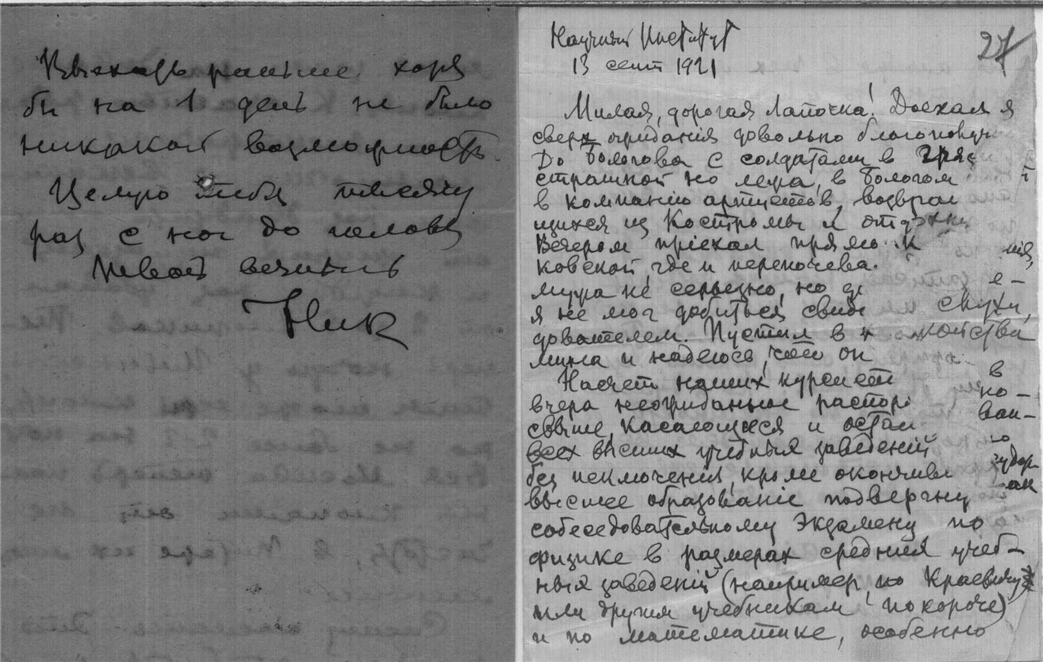 Выехать раньше хотя
бы на 1 день не было
никакой возможности.
Целую тебя тысячу
раз с ног до головы
Твой вечный
Ник
Научный Институт
13 сент 1921
27
Милая, дорогая Лапочка! Доехал я
сверх ожидания довольно благополуч
До Бологова с солдатами в гряз
страшной но лежа, в Бологом
в компанию артистов возвращ
щихся из Костромы и отдохну
Вечером приехал прямо к
ковской где и переночева.
мура не серьезно, но
я не мог добиться свид
дователем. Пустил в
мила и надеюсь что он
Насчет наших курсист
вчера неожиданное распор
свыше, касающееся и остал
всех высших учебныя заведенiй
без исключения, кроме окончивш
высшее образованiе подвергну
собеседовательному экзамену по
физике в размерах средния учеб-
ныя заведенiй (например, по Краевичу
или другим учебникам покороче)
и по математике, особенно